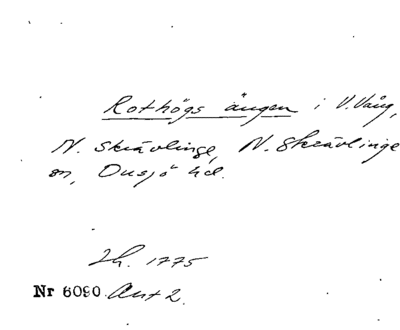 Rothögs ängen i V. Vång,
N. Skrävlinge, N. Skrävlinge
sn, Onsjö hd.
Lh. 1775
Nr 6090. Akt 2.